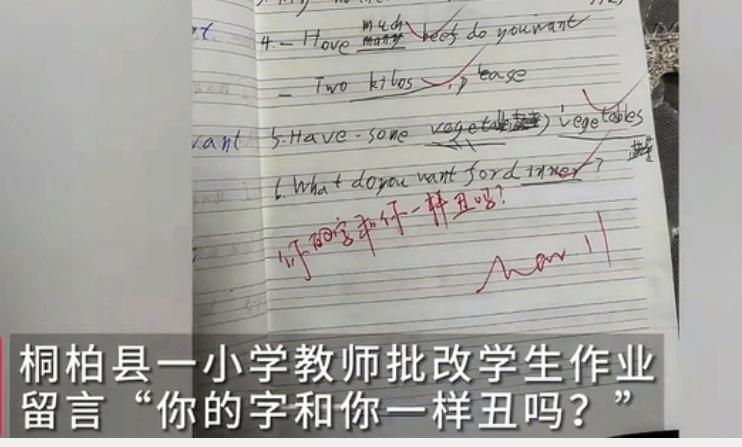 4. – Hove many beef do youwant
much
– Two kilos , please
vant
5. Have - some vegetab ) vegetables
6. What doyou want ford inner ?
你的字和你一样丑吗?
Mar. 11
桐柏县一小学教师批改学生作业
留言“你的字和你一样丑吗？”